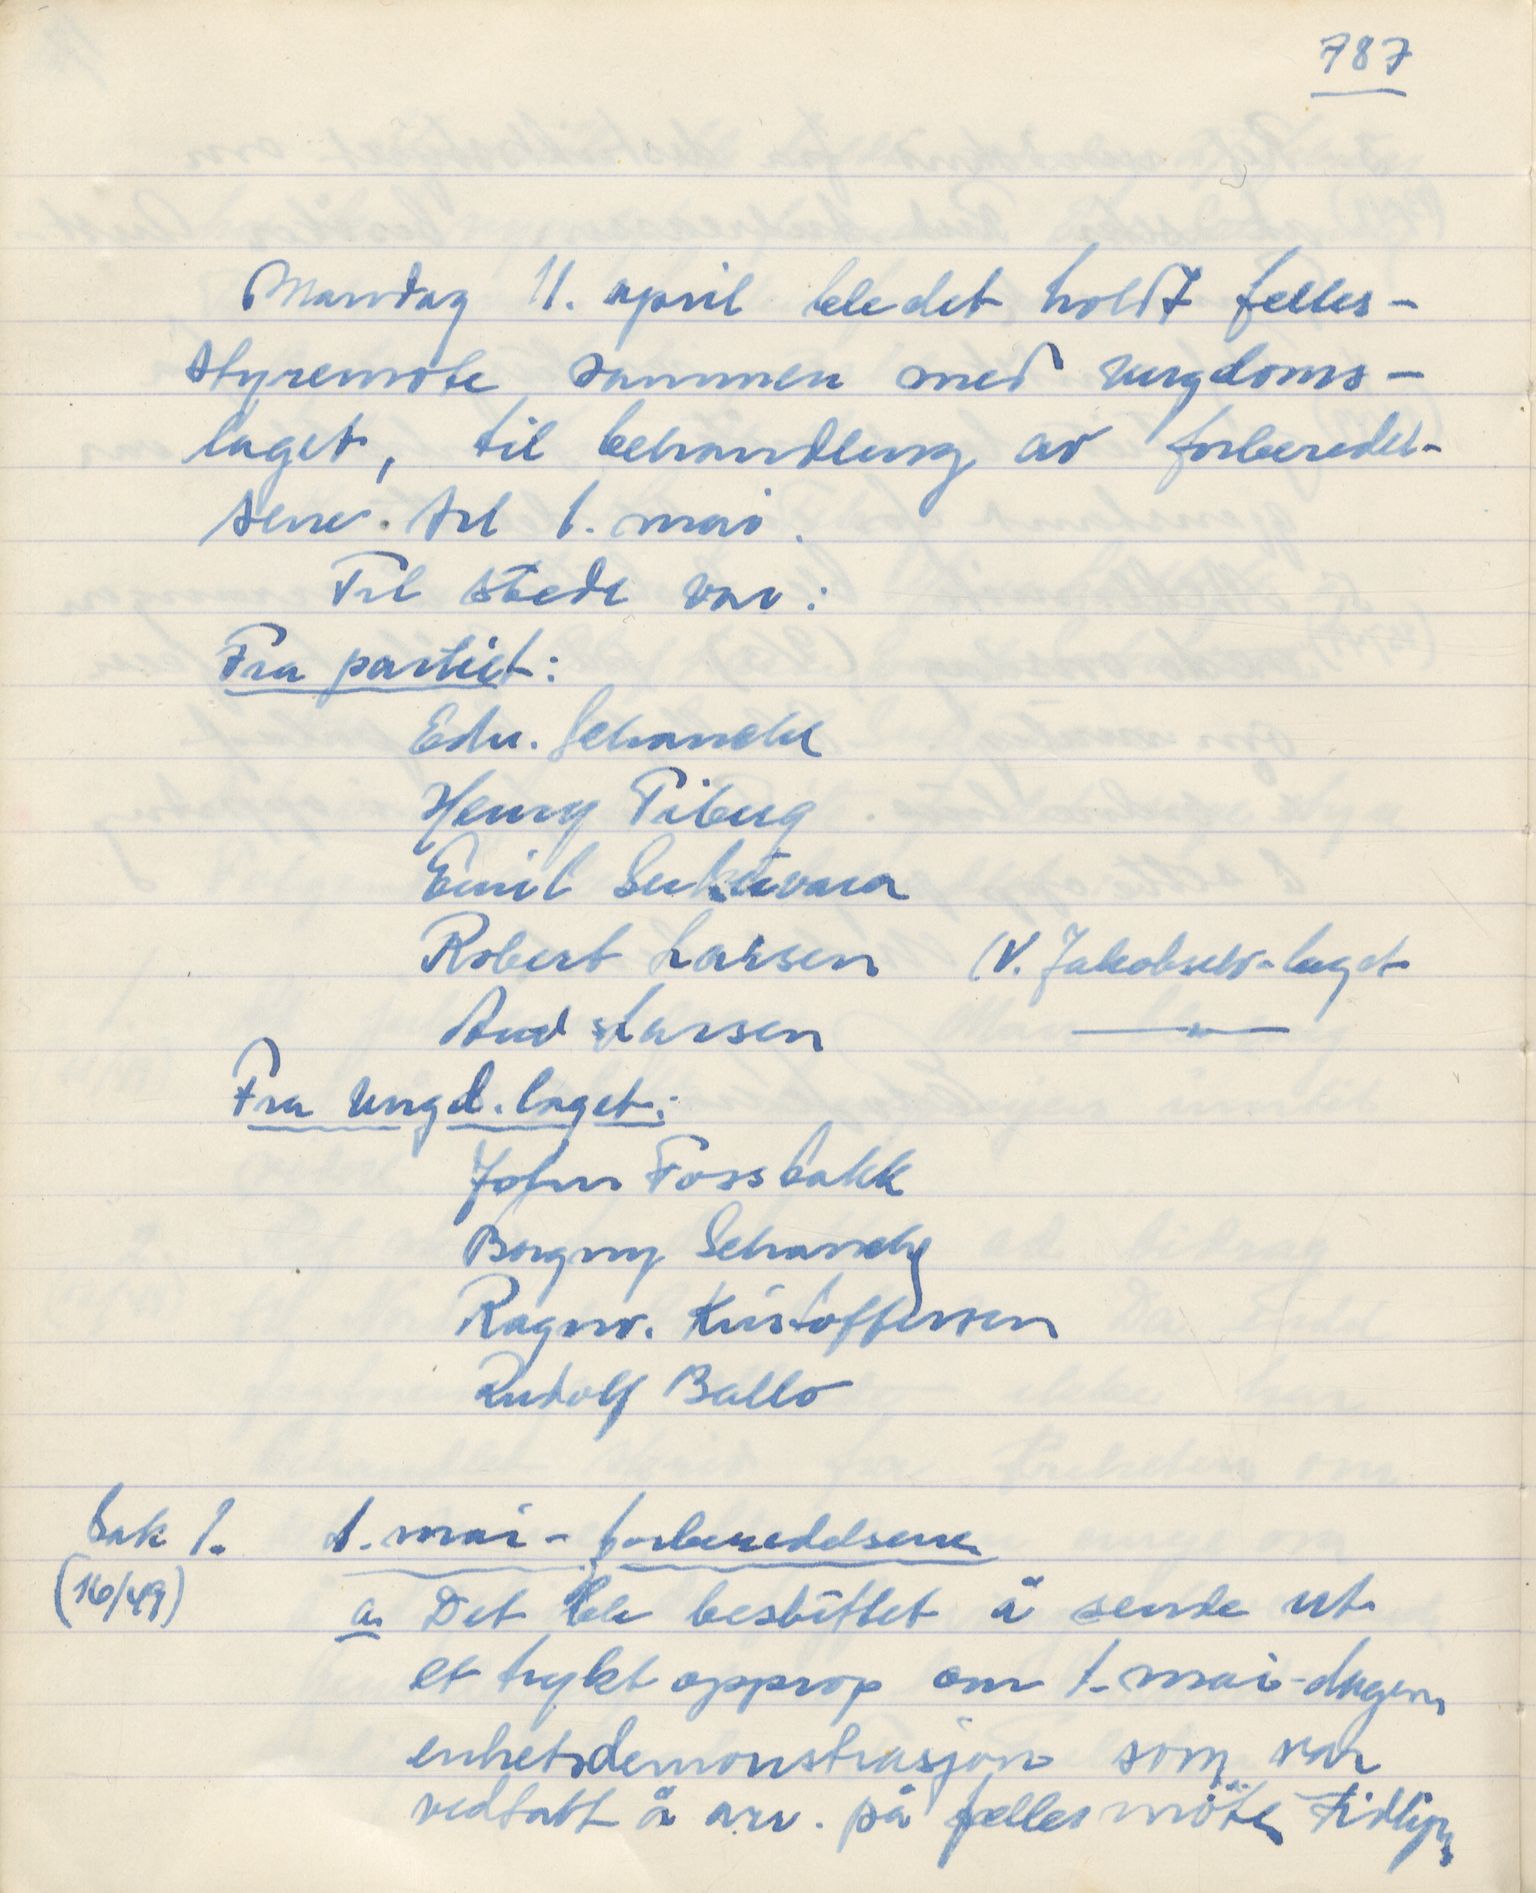 787
Mandag 11. april ble det holdt felles-
styremøte sammen med ungdoms-
laget, til behandling av forberedel-
sene til 1. mai.
Til stede var:
Fra partiet:
Edv. Schanche
Henry Tiberg
Emil
Robert Larsen (V. Jakobselv-laget
Aud Larsen —"—
Fra Ungd.laget:
John Fossbakk
Borgny Schanche
Ragnv. Kristoffersen
Rudolf Ballo
Sak 1. 1. mai-forberedelsene
(16/49) a. Det ble besluttet å sende ut
et trykt opprop om 1.-mai-dagen,
enhetsdemonstrasjon som var
vedtatt å arr. på fellesmöte tidligere